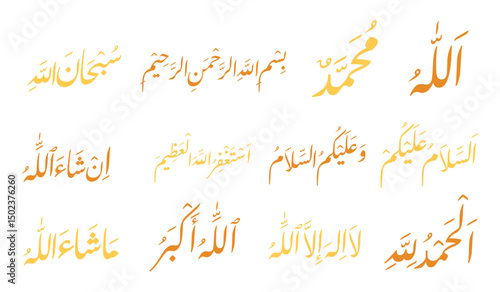 اَللّٰهُ
مُحَمَّدٌ
بِسْمِ اللهِ الرَّحْمٰنِ الرَّحِيْمِ
سُبْحَانَ اللهِ
اَلسَّلَامُ عَلَيْكُمْ
وَعَلَيْكُمُ السَّلَامُ
اَسْتَغْفِرُ اللهَ الْعَظِيْمَ
اِنْ شَاءَ اللّٰهُ
اَلْحَمْدُ لِلّٰهِ
لَا اِلٰهَ اِلَّا اللّٰهُ
اَللّٰهُ أَكْبَرُ
مَا شَاءَ اللّٰهُ
Adobe Stock | #1502376260